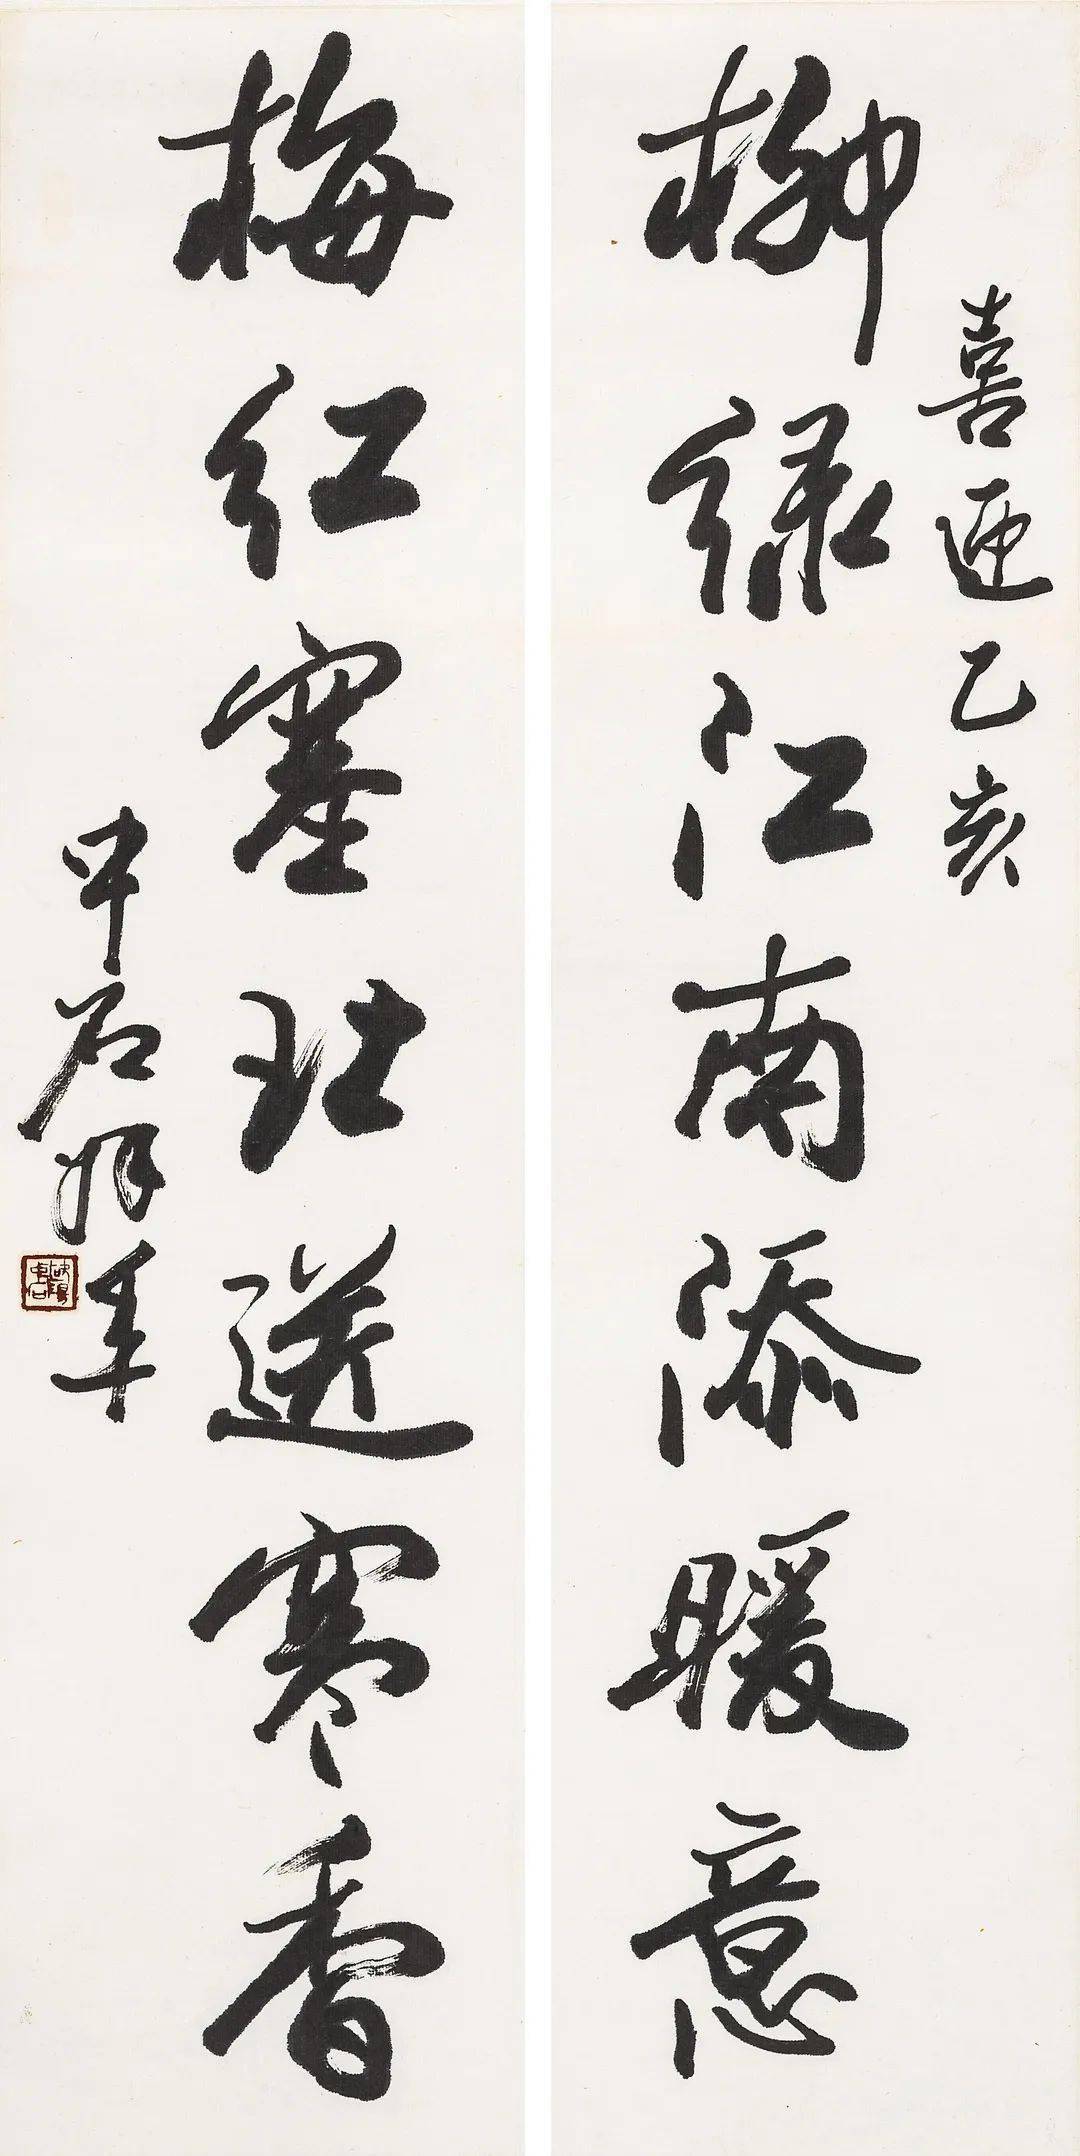 喜迎乙亥
柳绿江南添暖意
梅红塞北送寒香
中石拜年